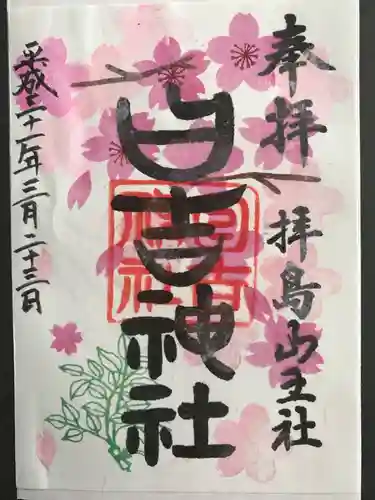 奉拝
拝島山王社
日吉神社
日吉神社
平成三十一年三月二十三日